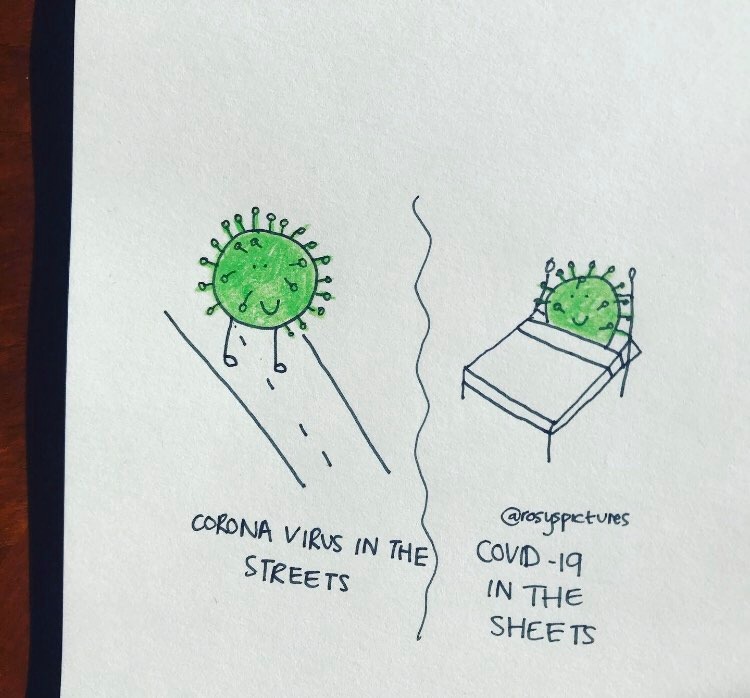 CORONA VIRUS IN THE
STREETS
@rosyspictures
COVID-19
IN THE
SHEETS